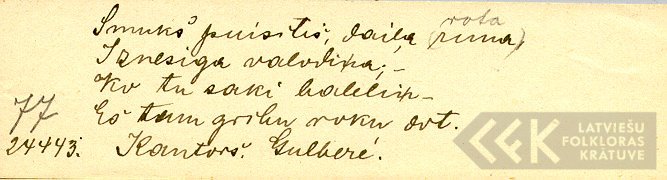 rota
Smukš puisītis, daiļa (runa)
Iznesīga valodiņa; –
Ko tu saki baleliņ –
Eš tam gribu roku dot.
77
24443. Kantorš. Gulberē.
LATVIEŠU
FOLKLORAS
KRĀTUVE